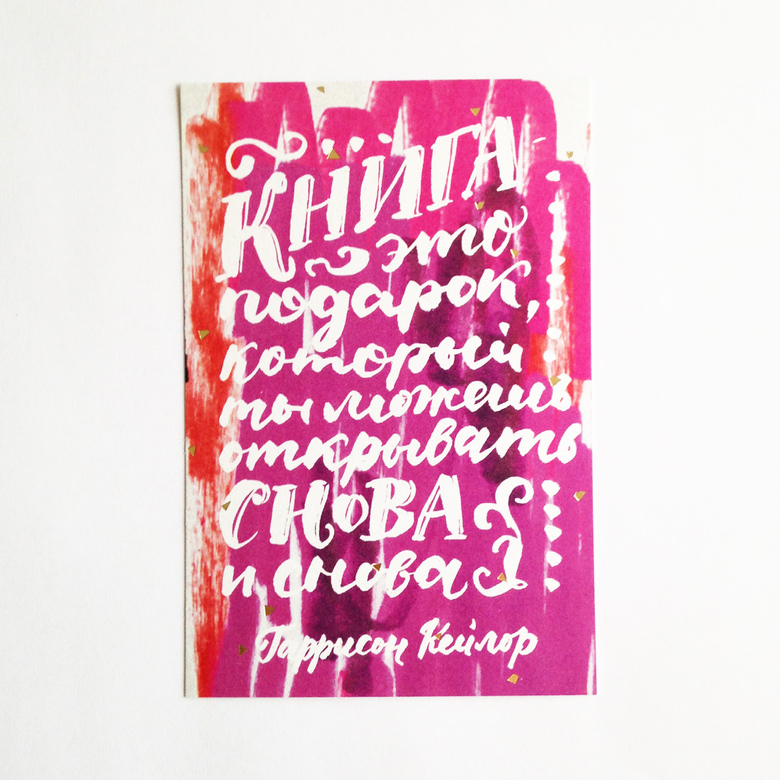 КНИГА
это
подарок,
который
ты можешь
открывать
СНОВА
и снова
Гаррисон Кейлор